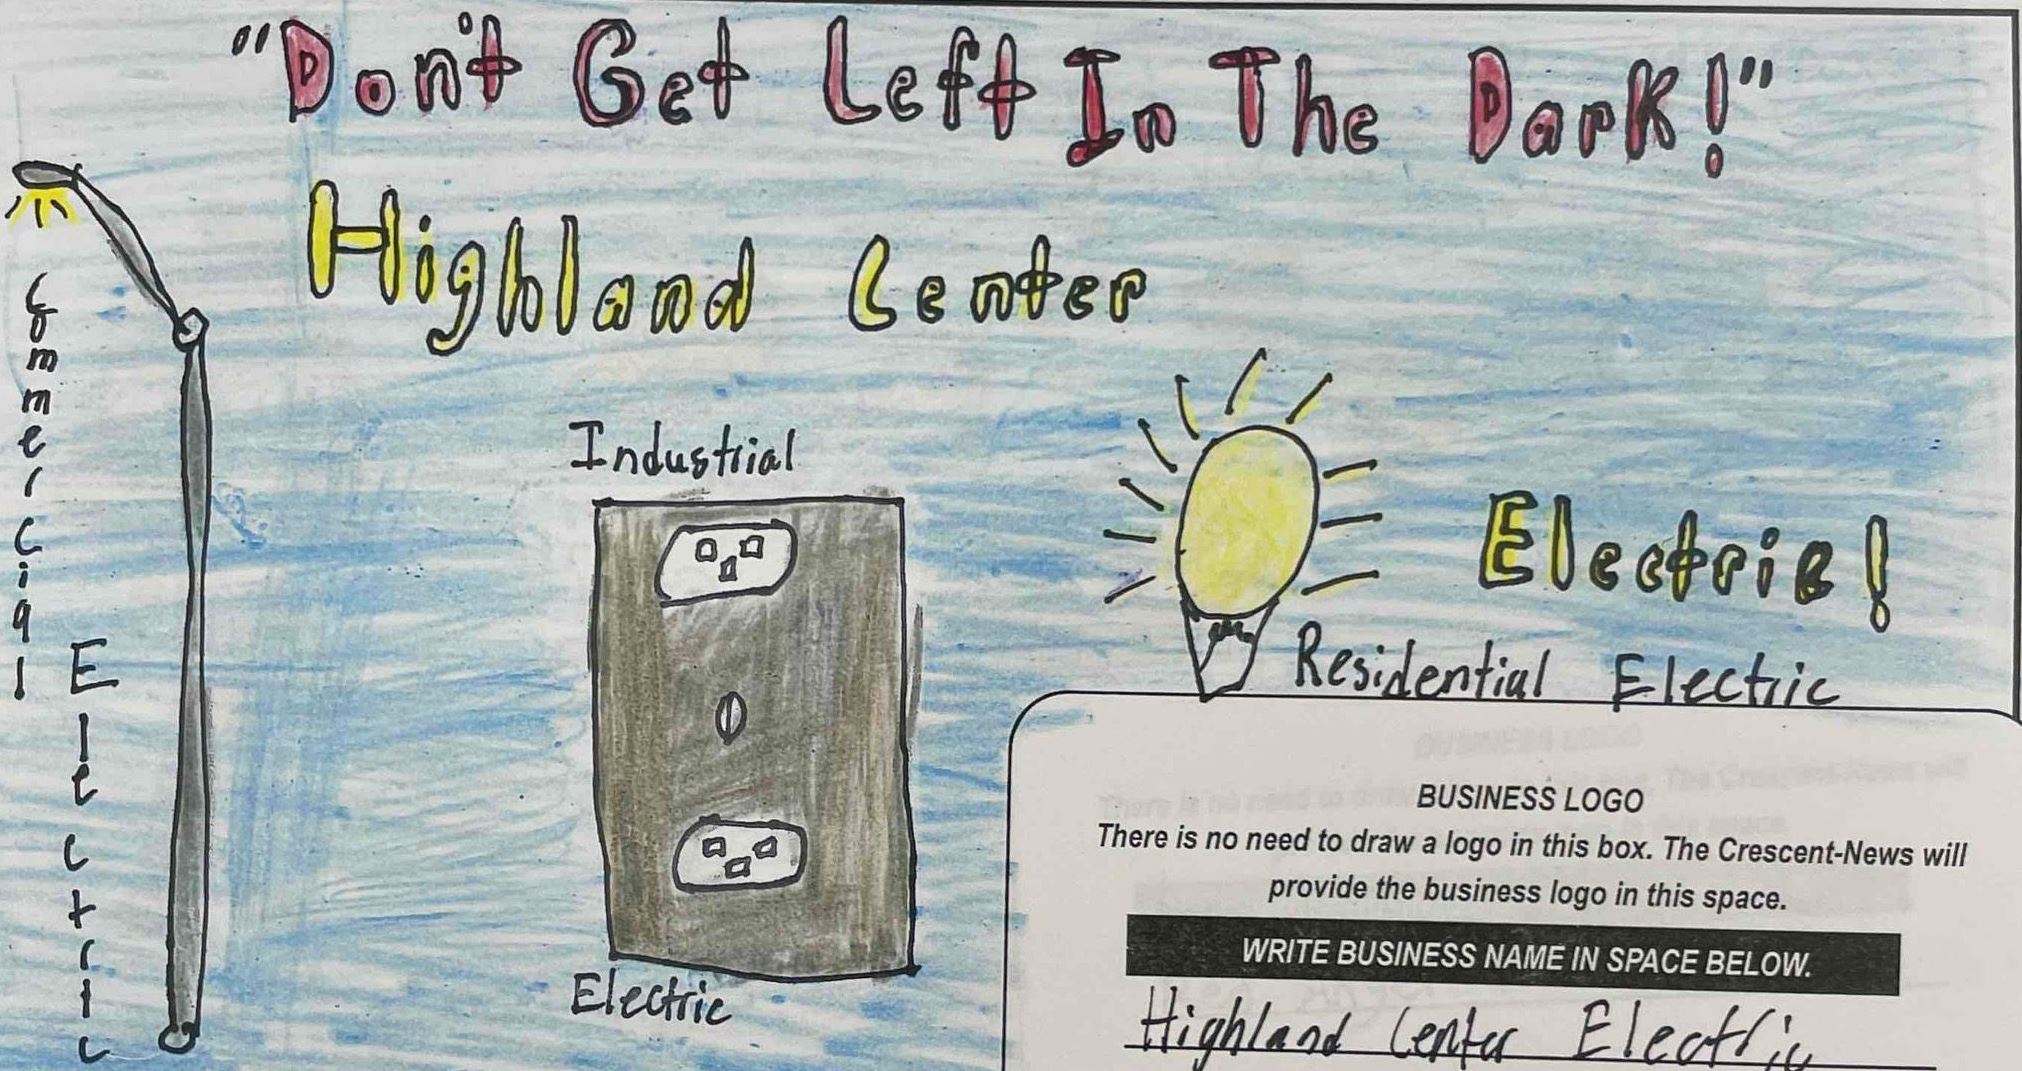 "Don't Get Left In The Dark!"
Highland Center
Electric!
Commercial
Electric
Industrial
Electric
Residential Electric
BUSINESS LOGO
There is no need to draw a logo in this box. The Crescent-News will
provide the business logo in this space.
WRITE BUSINESS NAME IN SPACE BELOW.
Highland Center Electric